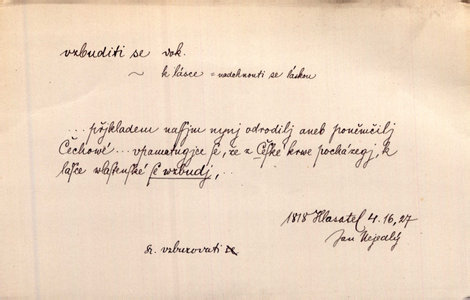 vzbuditi se dok.
~ k lásce = nadchnouti se láskou
... přjkladem naſſjm nynj odrodilj aneb poněmčilj
Čechowé ... vpamatugjce ſe, že z Čeſké krwe pocházegj, k
laſce wlaſtenſké ſe wzbudj, ...
1818 Hlasatel 4.16,27
Jan Nejedlý
sr. vzbuzovati